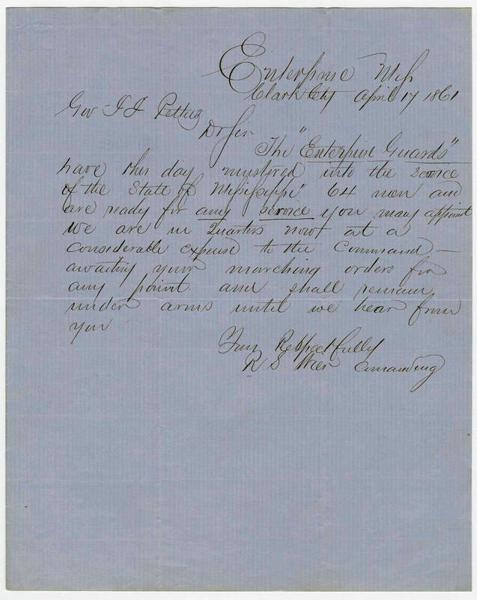 Enterprise Miss
Clark Cty April 17 1861
Gov J J Pettus
Dr Sir
The "Enterprise Guards"
have this day mustered into the service
of the State of Mississippi 64 men and
are ready for any service you may appoint
we are in Quarters now at a
considerable expense to the Command —
awaiting your marching orders for
any point and shall remain
under arms until we hear from
you
Respectfully
R S Weir Comanding